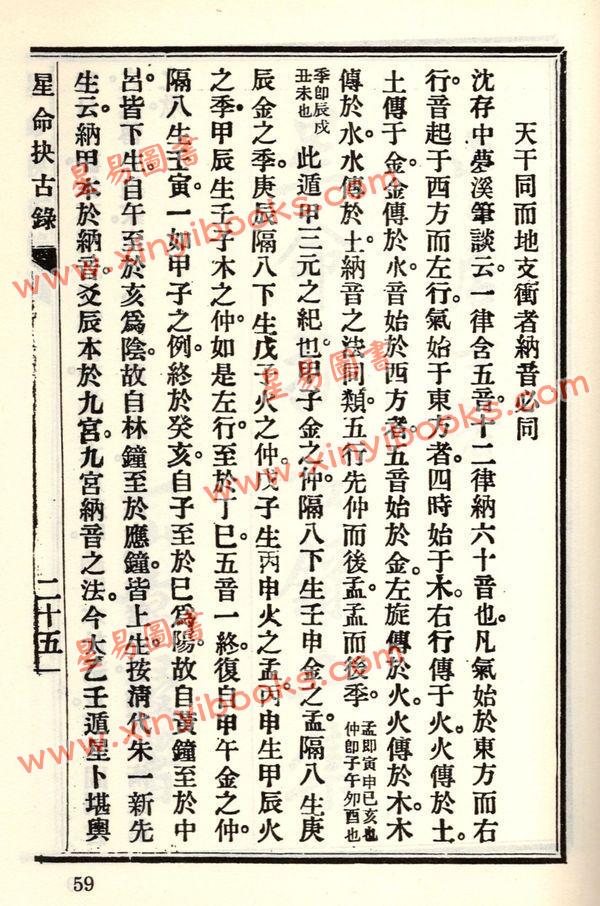 天干同而地支衝者納音必同
沈存中夢溪筆談云。一律含五音。十二律納六十音也。凡氣始於東方而右
行。音起于西方而左行。氣始于東方者。四時始于木。右行傳于火。火傳於土。
土傳于金。金傳於水。音始於西方者。五音始於金。左旋傳於火。火傳於木。木
傳於水。水傳於土。納音之法。同類五行。先仲而後孟。孟而後季。孟即寅申巳亥也仲即子午卯酉也
季卽辰戌丑未也 此遁甲三元之紀也。甲子金之仲。隔八下生壬申金之孟。隔八生庚
辰金之季。庚辰隔八下生戊子火之仲。戊子生丙申火之孟。丙申生甲辰火
之季。甲辰生壬子木之仲。如是左行。至於丁巳。五音一終。復自甲午金之仲。
隔八生壬寅。一如甲子之例。終於癸亥。自子至於巳爲陽。故自黃鐘至於中
呂。皆下生。自午至於亥爲陰。故自林鐘至於應鐘。皆上生。按淸代朱一新先
生云。納甲本於納音。爻辰本於九宮。九宮納音之法。今太乙壬遁星卜堪輿
星命抉古錄
二十五
59
星易圖書
www.xinyibooks.com
星易圖書
www.xinyibooks.com
星易圖書
www.xinyibooks.com